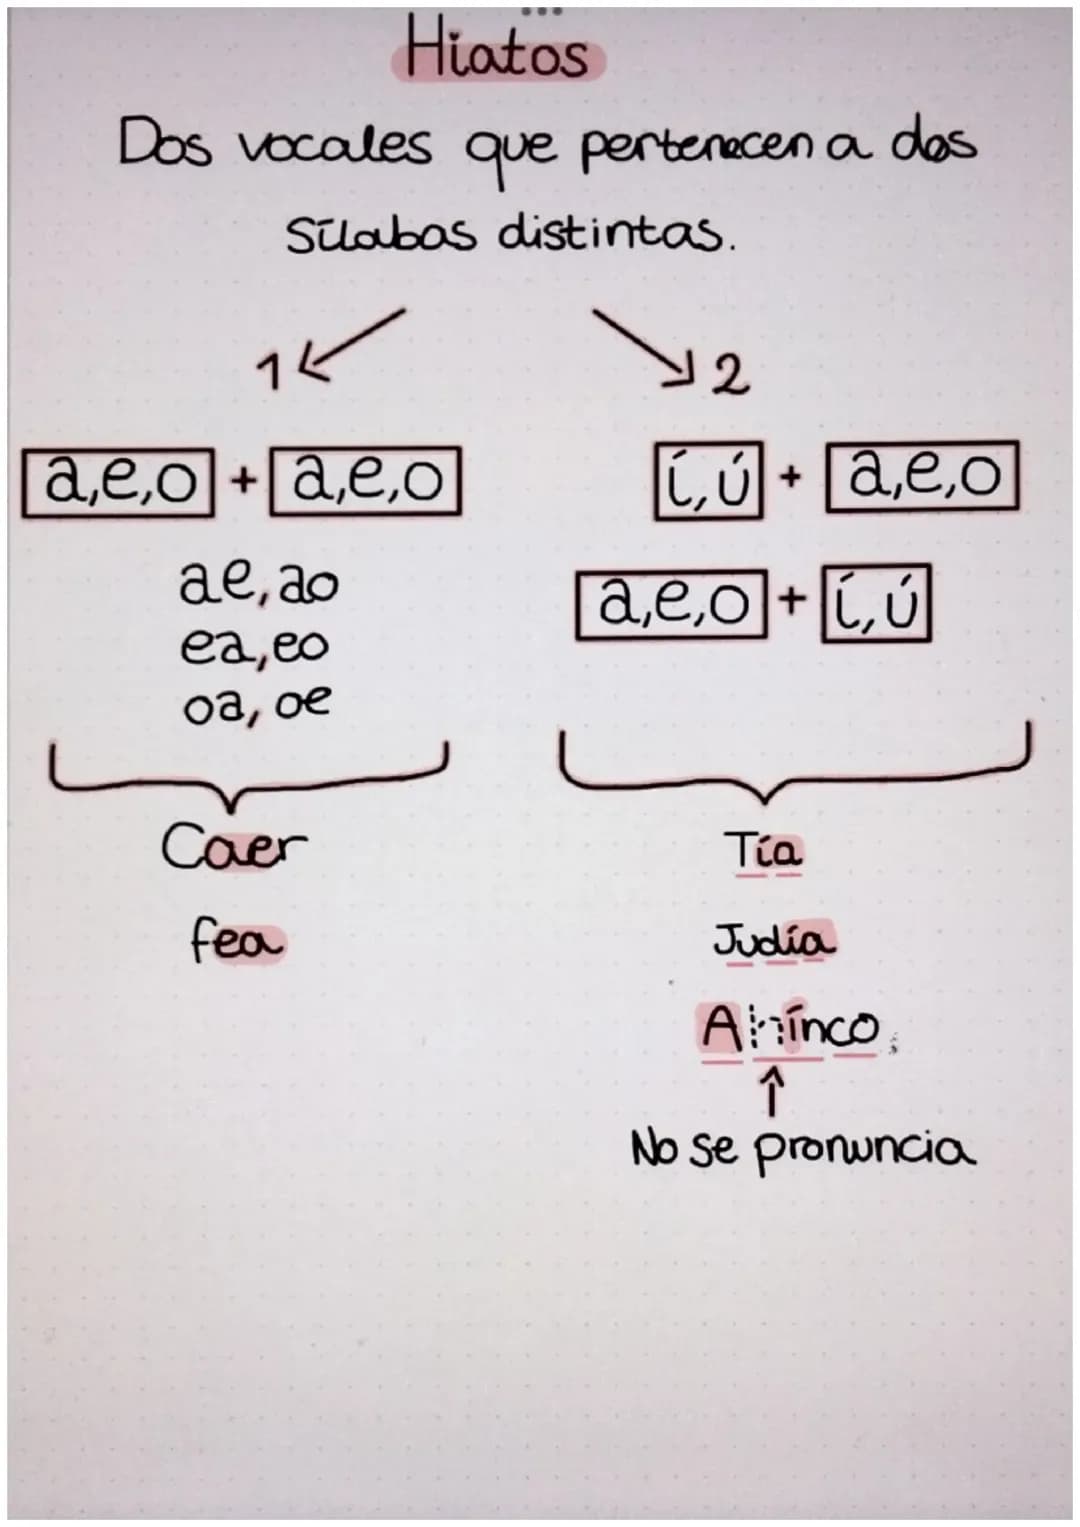 Hiatos
Dos vocales que pertenecen a dos
Sílabas distintas.
1
a,e,o + a,e,o
ae, ao
ea, eo
oa, oe
Caer
fea
2
í, ú + a,e,o
a,e,o + í, ú
Tía
Judía
Ahínco
No se pronuncia